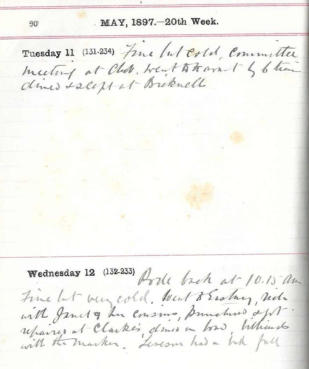 90
MAY, 1897.—20th Week.
Tuesday 11 (131-234) Fine but cold, committee
meeting at Club. went to by 6 train
dined & slept at
Wednesday 12 (132-233) Rode back at 10.15 am
Fine but very cold. Went to Eastney, ride
with Janet & her cousins, punctured & got
repaired at Clarkes, dined on board, billiards
with the Marker. had a bad fall